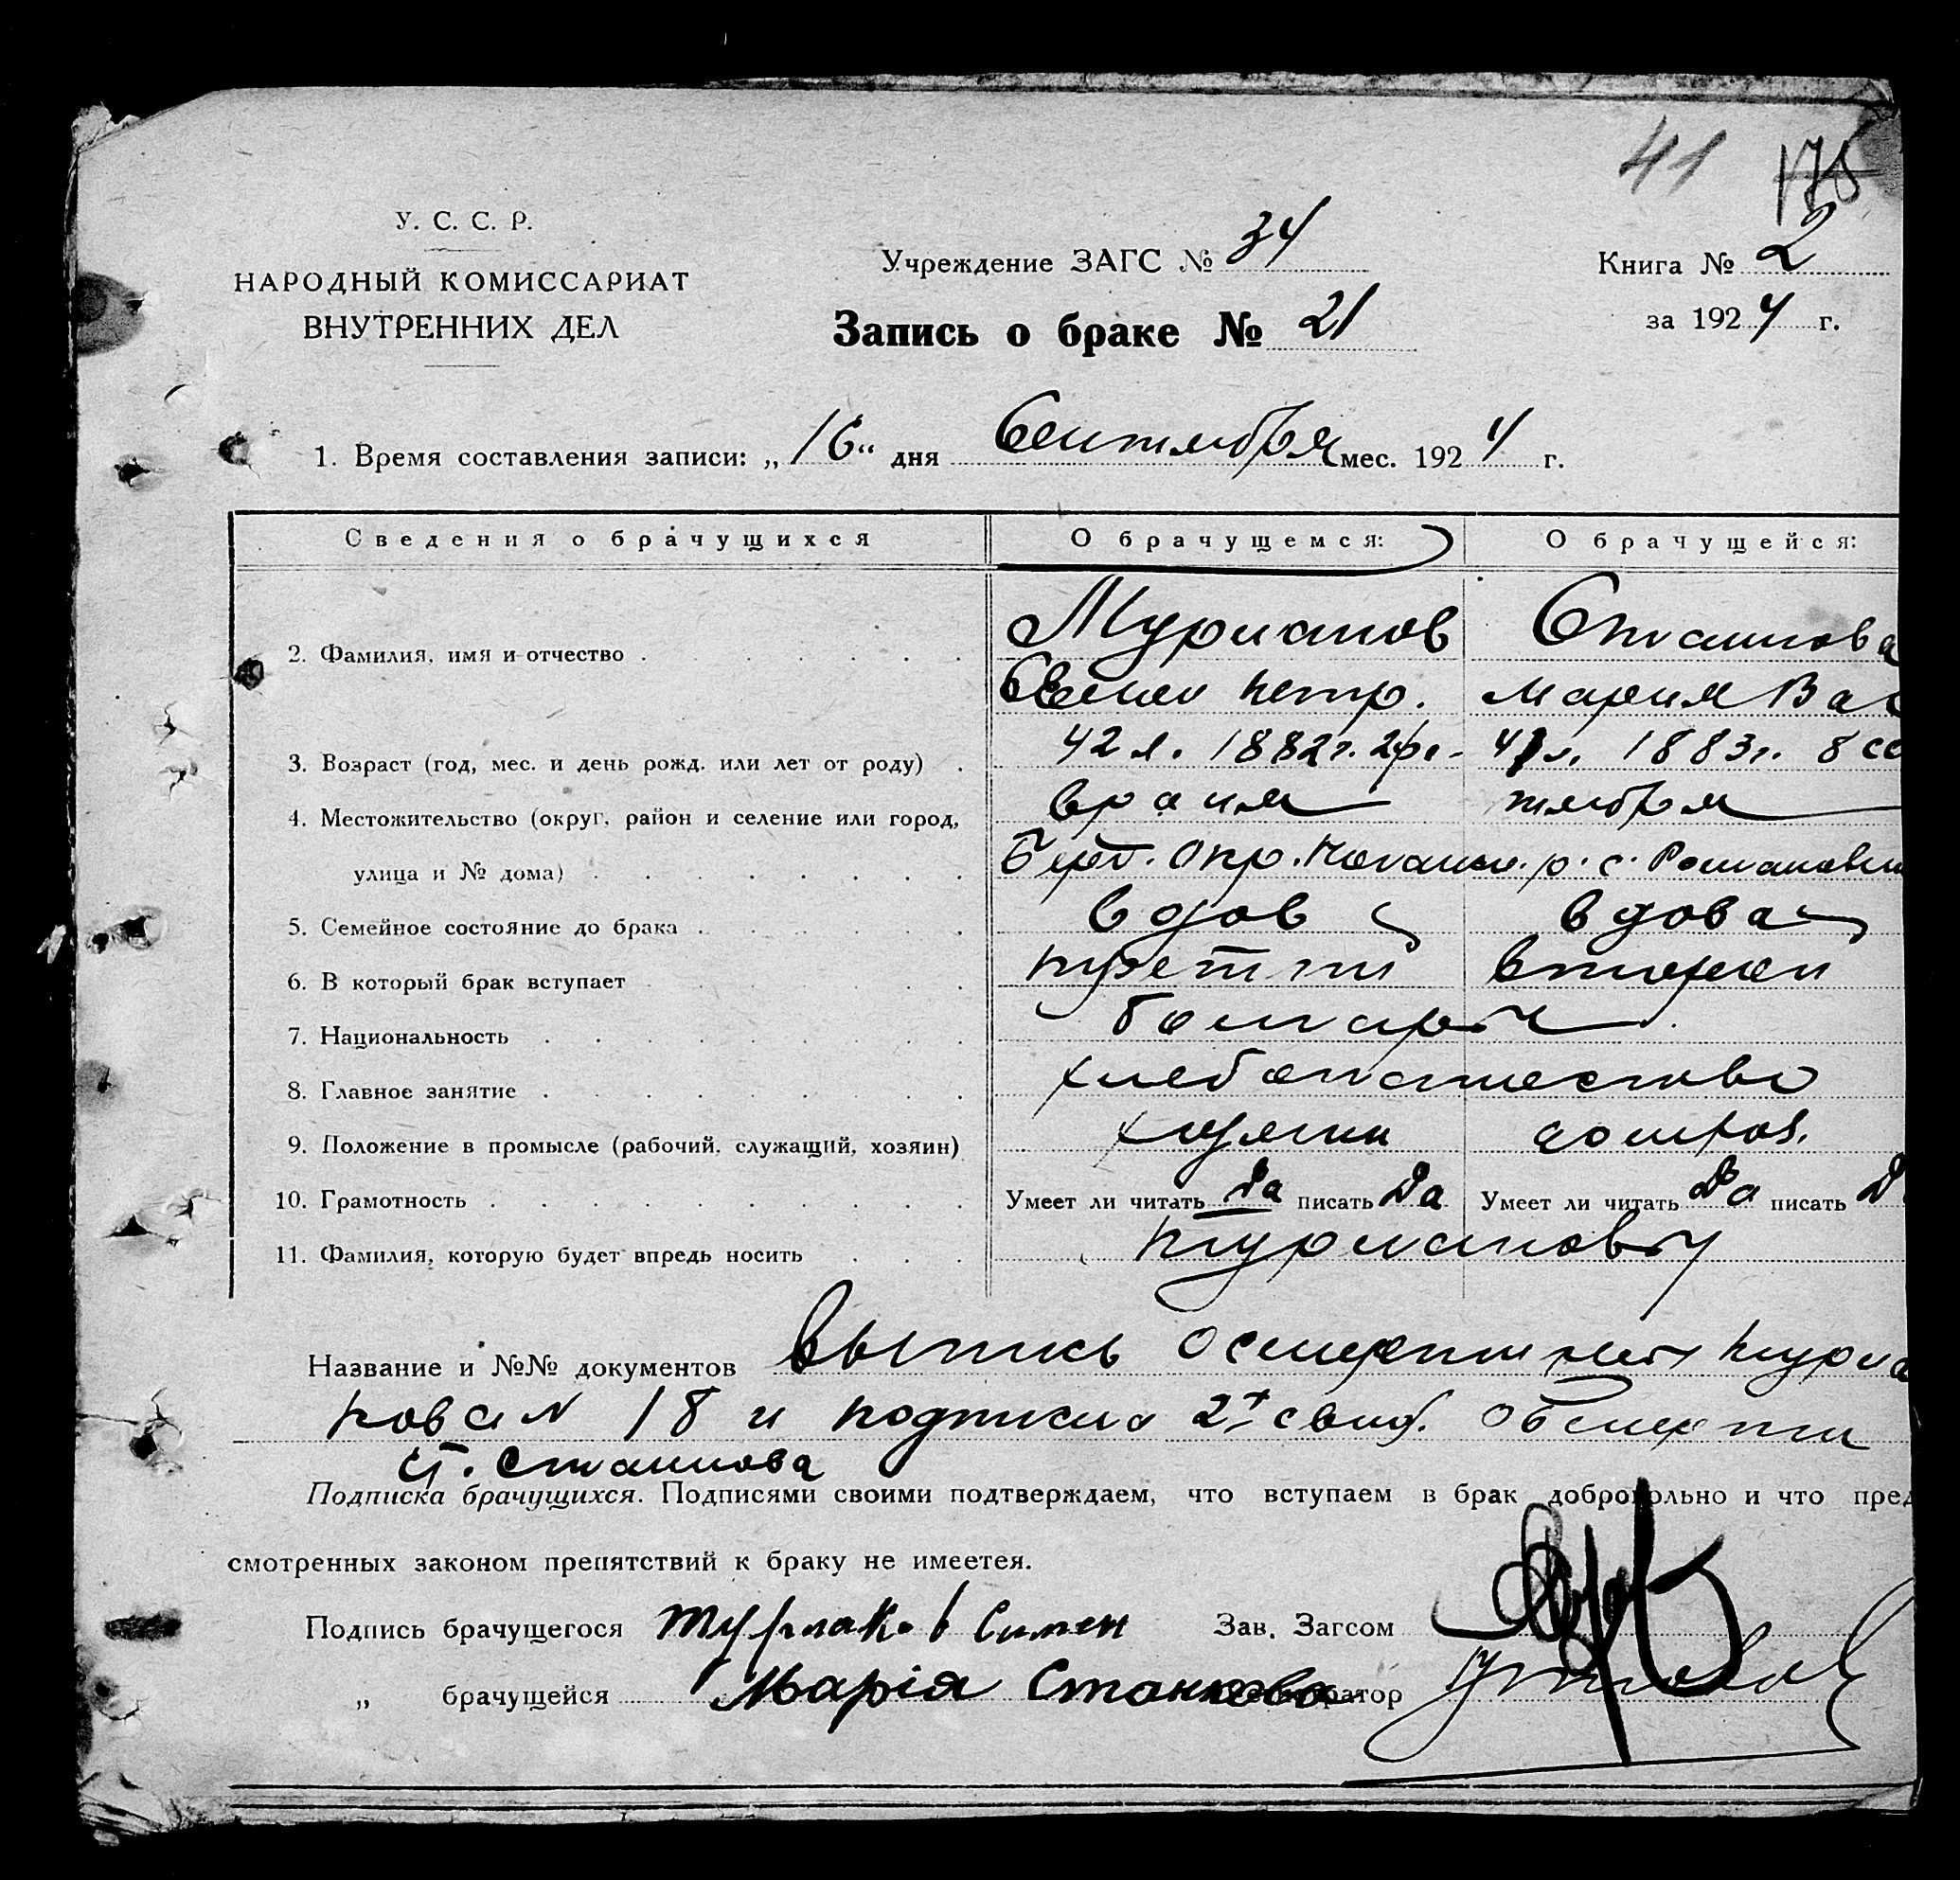 41 175
У. С. С. Р.
НАРОДНЫЙ КОМИССАРИАТ
ВНУТРЕННИХ ДЕЛ
Учреждение ЗАГС № 34
Книга № 2
Запись о браке № 21
за 1924 г.
1. Время составления записи: „16“ дня Сентября мес. 1924 г.
Сведения о брачущихся О брачущемся: О брачущейся:
2. Фамилия, имя и отчество Турлаков Станкова
Семен Петр. Мария Вас
3. Возраст (год, мес. и день рожд. или лет от роду) 42 л. 1882 г. 2 фе- 41 л. 1883 г. 8 се
враля тября
4. Местожительство (округ, район и селение или город,
улица и № дома) Окр. р. с. Романовк
5. Семейное состояние до брака вдов вдова
6. В который брак вступает третий вторей
7. Национальность болгары
8. Главное занятие хлебопашество
9. Положение в промысле (рабочий, служащий, хозяин) хозяин домхоз.
10. Грамотность Умеет ли читать да писать да Умеет ли читать да писать д
11. Фамилия, которую будет впредь носить Турлаковы
Название и №№ документов Выпись о смерти Турла
кова № 18 и подписка 2х свид. о смерти
Станкова
Подписка брачущихся. Подписями своими подтверждаем, что вступаем в брак добровольно и что пред
смотренных законом препятствий к браку не имеется.
Подпись брачущегося Турлаков Симен Зав. Загсом
„ брачущейся Марія Станкова ратор